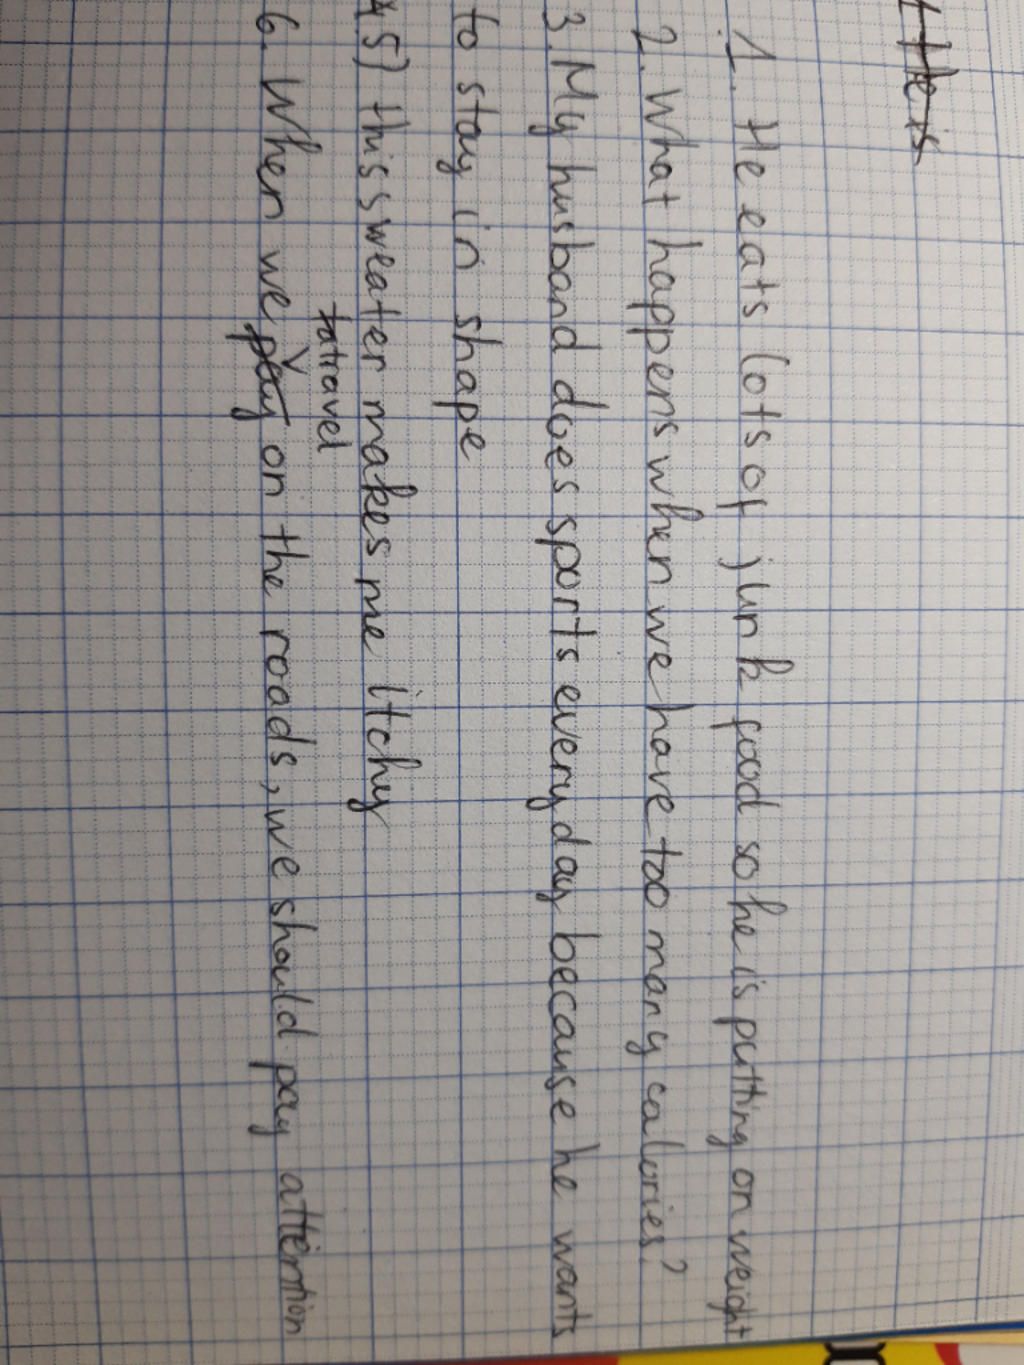 1 He is
1. He eats lots of junk food so he is putting on weight
2. What happens when we have too many calories?
3. My husband does sports every day because he wants
to stay in shape
4.5) this sweater makes me itchy
ta travel
6. When we pay on the roads, we should pay attention